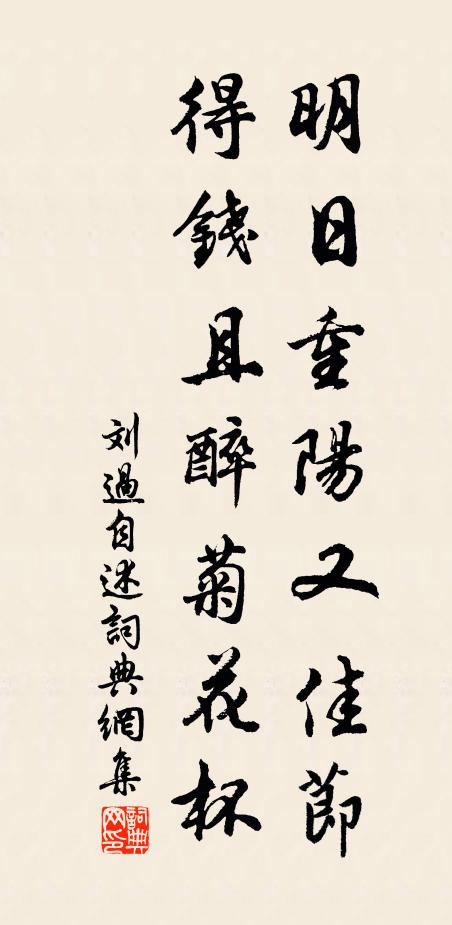 明日重陽又佳節
得錢且醉菊花杯
刘過自述詞典網集
詞典网印